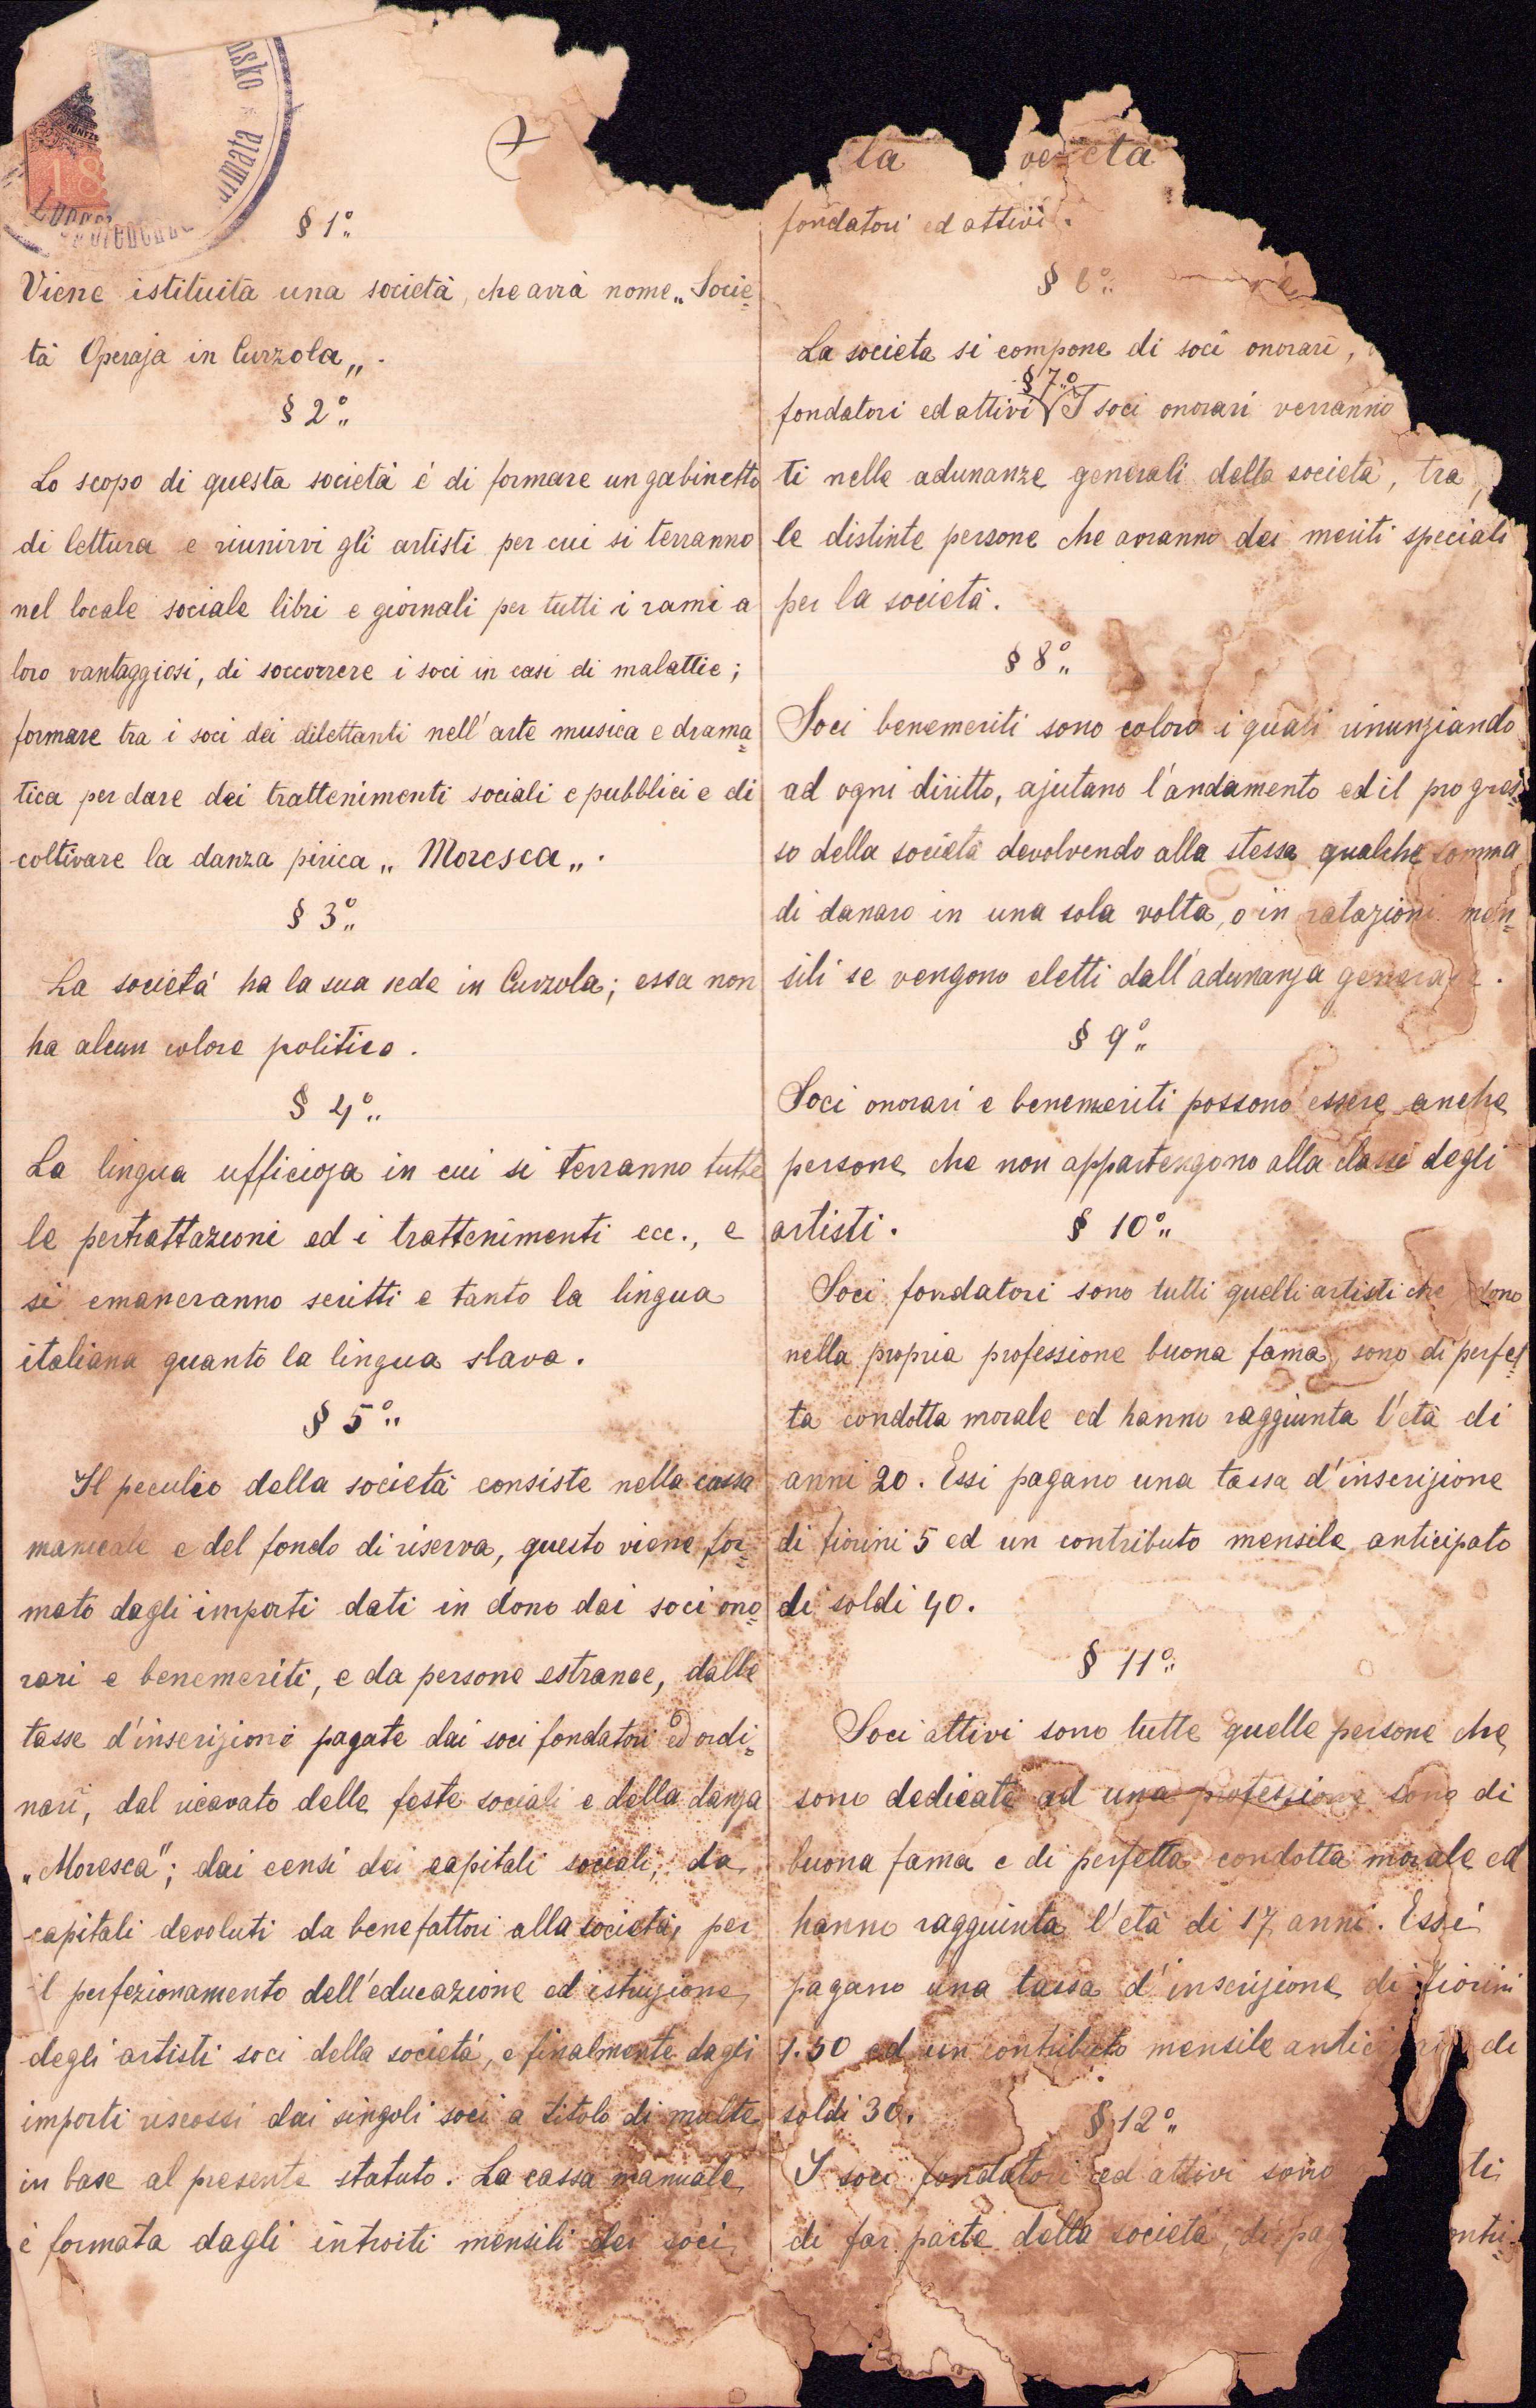 nsko
mata
18
§ 1º
Viene istituita una società, che avrà nome „ Socie=
tà Operaja in Curzola „ .
§ 2º
Lo scopo di questa società é di formare un gabinetto
di lettura e riunirvi gli artisti per cui si terranno
nel locale sociale libri e giornali per tutti i rami a
loro vantaggiosi, di soccorrere i soci in casi di malattie ;
formare tra i soci dei dilettanti nell'arte musica e drama=
tica per dare dei trattenimenti sociali e pubblici e di
coltivare la danza pirica „ Moresca „ .
§ 3º
La società ha la sua sede in Curzola ; essa non
ha alcun colore politico .
§ 4º
La lingua ufficiosa in cui si terranno tutte
le pertrattazioni ed i trattenimenti ecc., e
si emaneranno scritti e tanto la lingua
italiana quanto la lingua slava .
§ 5º
Il peculio della società consiste nella cassa
manuale e del fondo di riserva, questo viene for=
mato dagli importi dati in dono dai soci ono=
rari e benemeriti, e da persone estranee, dalle
tasse d'inscrizione pagate dai soci fondatori ed ordi=
nari, dal ricavato delle feste sociali e della danza
„Moresca" ; dai censi dei capitali sociali, da
capitali devoluti da benefattori alla società, per
il perfezionamento dell'educazione ed istruzione
degli artisti soci della società, e finalmente dagli
importi riscossi dai singoli soci a titolo di multe
in base al presente statuto. La cassa manuale
è formata dagli introiti mensili dei soci
la
fondatori ed attivi .
§ 6º
La societa si compone di soci onorari,
§ 7º
fondatori ed attivi I soci onorari verranno
ti nelle adunanze generali della società, tra
le distinte persone che avranno dei meriti speciali
per la società .
§ 8º
Soci benemeriti sono coloro i quali rinunziando
ad ogni diritto, ajutano l'andamento ed il progres=
so della società devolvendo alla stessa qualche somma
di danaro in una sola volta, o in ratazioni men=
sili se vengono eletti dall'adunanza generale .
§ 9º
Soci onorari e benemeriti possono essere anche
persone che non appartengono alla classe degli
artisti .
§ 10º
Soci fondatori sono tutti quelli artisti che
nella propria professione buona fama, sono di perfet=
ta condotta morale ed hanno raggiunta l'età di
anni 20 . Essi pagano una tassa d'inscrizione
di fiorini 5 ed un contributo mensile anticipato
di soldi 40 .
§ 11º
Soci attivi sono tutte quelle persone che
sono dedicate ad una professione sono di
buona fama e di perfetta condotta morale ed
hanno raggiunta l'età di 17 anni . Essi
pagano una tassa d'inscrizione di fiorini
1.50 ed un contributo mensile di
soldi 30 .
§ 12º
I soci fondatori ed attivi sono ti
di far parte della società, di pag ontri=